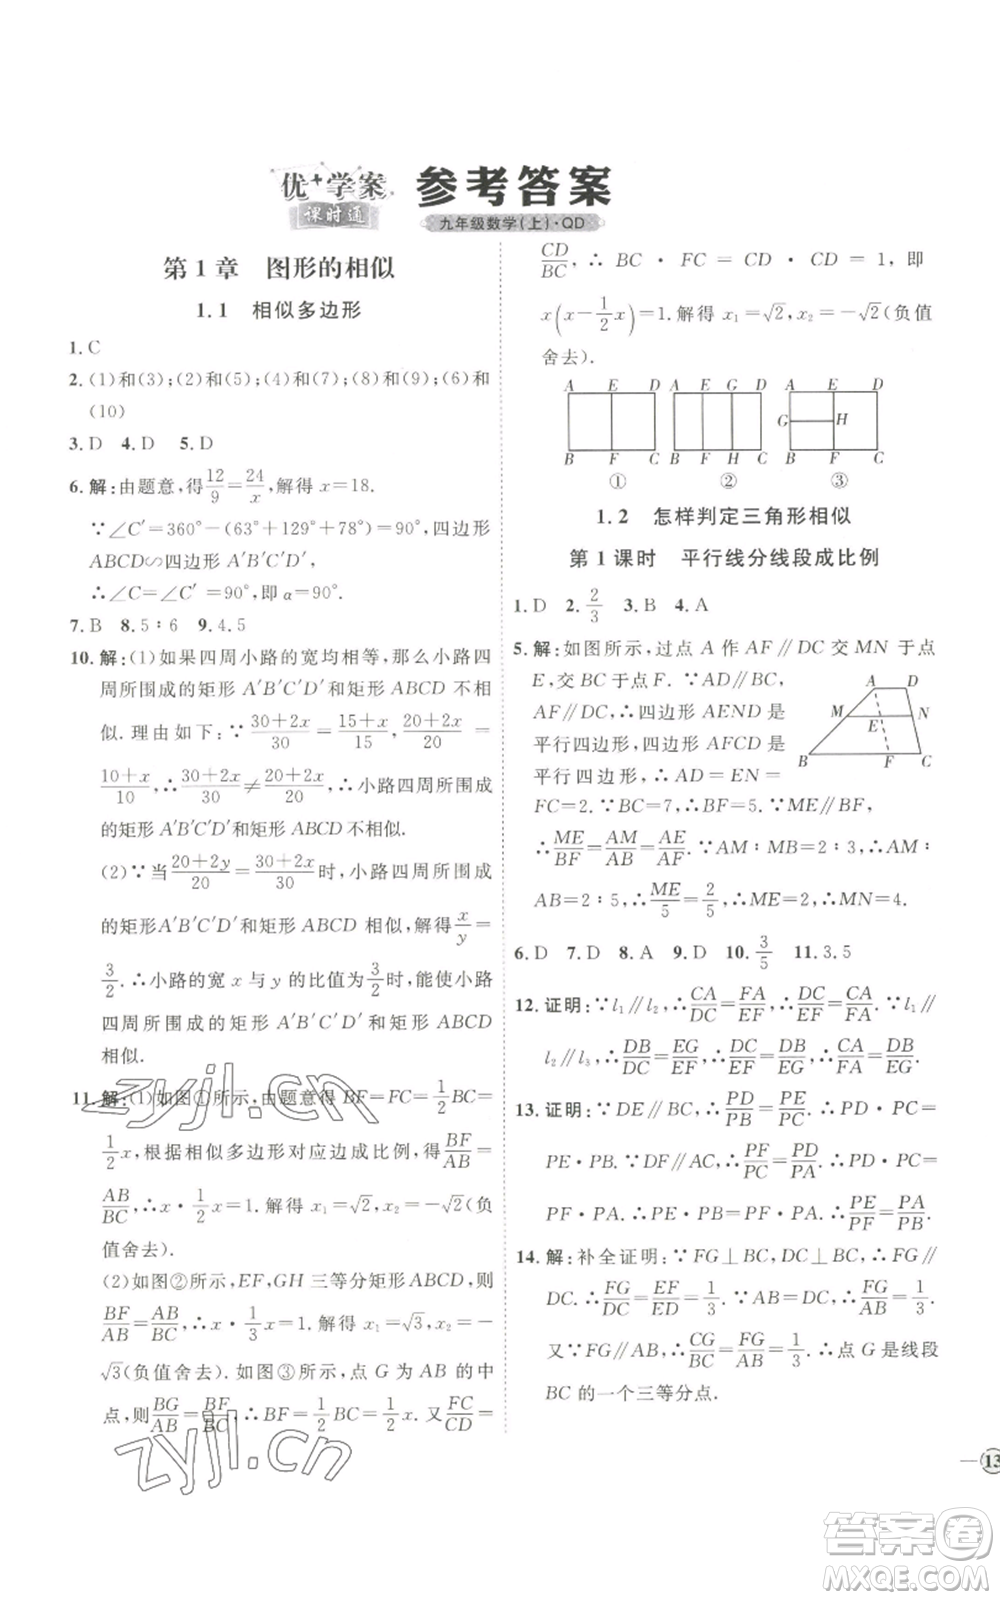 优+学案
课时通
参考答案
九年级数学(上)·QD
第1章 图形的相似
1.1 相似多边形
1. C
2. (1)和(3);(2)和(5);(4)和(7);(8)和(9);(6)和
(10)
3. D 4. D 5. D
6. 解:由题意,得12/9=24/x,解得 x=18.
∵∠C′=360°-(63°+129°+78°)=90°,四边形
ABCD∽四边形 A′B′C′D′,
∴∠C=∠C′=90°,即 α=90°.
7. B 8. 5∶6 9. 4.5
10. 解:(1)如果四周小路的宽均相等,那么小路四
周所围成的矩形 A′B′C′D′和矩形 ABCD 不相
似.理由如下:∵(30+2x)/30=(15+x)/15,(20+2x)/20=
(10+x)/10,∴(30+2x)/30≠(20+2x)/20,∴小路四周所围成
的矩形 A′B′C′D′和矩形 ABCD 不相似.
(2)∵当(20+2y)/20=(30+2x)/30时,小路四周所围成
的矩形 A′B′C′D′和矩形 ABCD 相似,解得x/y=
3/2.∴小路的宽 x 与 y 的比值为3/2时,能使小路
四周所围成的矩形 A′B′C′D′和矩形 ABCD
相似.
11. 解:(1)如图①所示,由题意得 BF=FC=1/2BC=
1/2x,根据相似多边形对应边成比例,得BF/AB=
AB/BC,∴x·1/2x=1.解得 x₁=√2,x₂=-√2(负
值舍去).
(2)如图②所示,EF,GH 三等分矩形 ABCD,则
BF/AB=AB/BC,∴x·1/3x=1.解得 x₁=√3,x₂=-
√3(负值舍去).如图③所示,点 G 为 AB 的中
点,则BG/AB=BF/BC,∴BF=1/2BC=1/2x.又FC/CD=
CD/BC,∴BC·FC=CD·CD=1,即
x(x-1/2x)=1.解得 x₁=√2,x₂=-√2(负值
舍去).
A E D A E G D A E D
G H
B F C B F H C B F C
① ② ③
1.2 怎样判定三角形相似
第1课时 平行线分线段成比例
1. D 2. 2/3 3. B 4. A
5. 解:如图所示,过点 A 作 AF∥DC 交 MN 于点
E,交 BC 于点 F.∵AD∥BC,
AF∥DC,∴四边形 AEND 是
平行四边形,四边形 AFCD 是
平行四边形,∴AD=EN=
FC=2.∵BC=7,∴BF=5.∵ME∥BF,
A D
M E N
B F C
∴ME/BF=AM/AB=AE/AF.∵AM∶MB=2∶3,∴AM∶
AB=2∶5.∴ME/5=2/5,∴ME=2,∴MN=4.
6. D 7. D 8. A 9. D 10. 3/5 11. 3.5
12. 证明:∵l₁∥l₂,∴CA/DC=FA/EF,∴DC/CA=EF/FA.∵l₁∥
l₂∥l₃,∴DB/DC=EG/EF,∴DC/DB=EF/EG,∴CA/DB=FA/EG.
13. 证明:∵DE∥BC,∴PD/PB=PE/PC,∴PD·PC=
PE·PB.∵DF∥AC,∴PF/PC=PD/PA,∴PD·PC=
PF·PA.∴PE·PB=PF·PA,∴PE/PF=PA/PB.
14. 解:补全证明:∵FG⊥BC,DC⊥BC,∴FG∥
DC.∴FG/DC=EF/ED=1/3.∵AB=DC,∴FG/AB=1/3.
又∵FG∥AB,∴CG/BC=FG/AB=1/3,∴点 G 是线段
BC 的一个三等分点.
zyjl.cn
zyjl.cn
13
答案卷
MXQE.COM